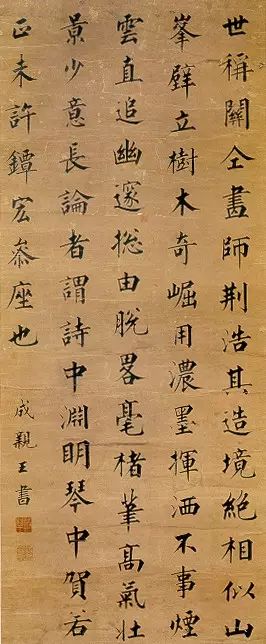 世稱關仝畫師荆浩其造境絕相似山
峯壁立樹木奇崛用濃墨揮洒不事煙
雲直追幽邃捴由脫畧毫楮筆髙氣壯
景少意長論者謂詩中淵眀琴中賀若
正未許鐔宏叅座也
成親王書